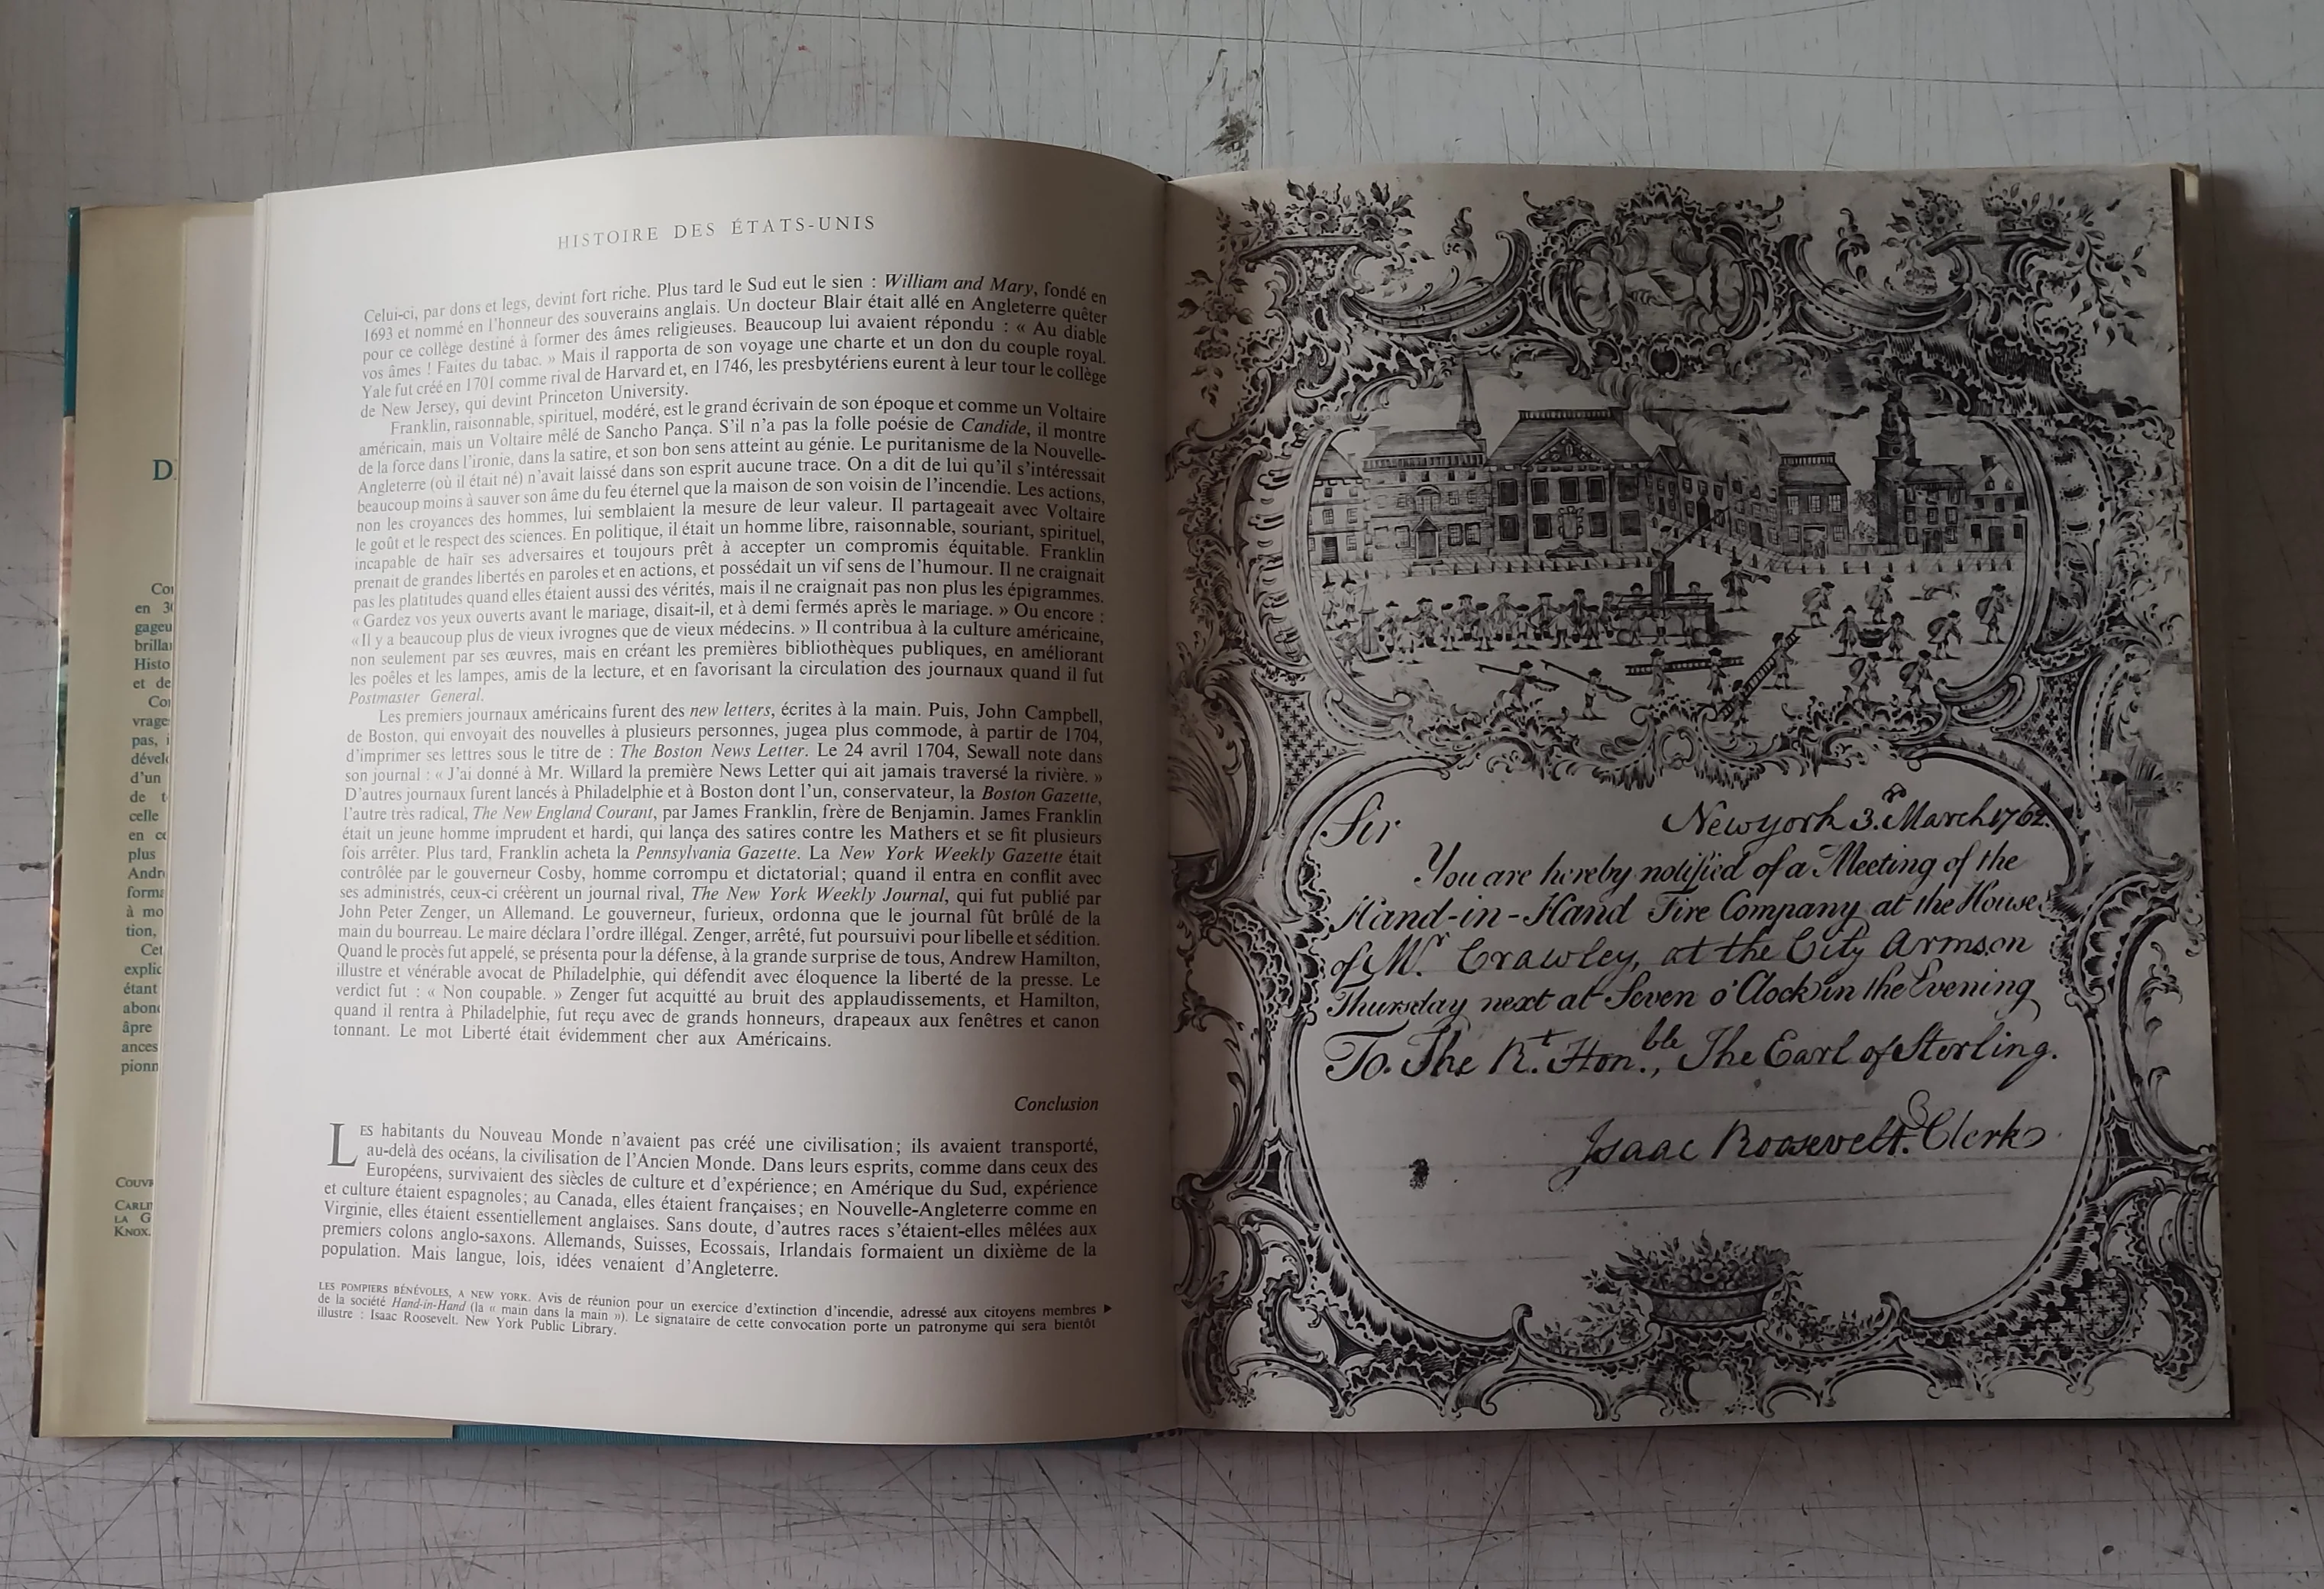 D
Co
en 3
gageu
brilla
Histo
et de
Co
vrage
pas, i
dével
d'un
de t
celle
en c
plus
André
forma
à mo
tion,
Cet
explic
étant
abon
âpre
ances
pionn
COUV
CARLI
LA G
KNOX.
HISTOIRE DES ÉTATS-UNIS
Celui-ci, par dons et legs, devint fort riche. Plus tard le Sud eut le sien : William and Mary, fondé en
1693 et nommé en l'honneur des souverains anglais. Un docteur Blair était allé en Angleterre quêter
pour ce collège destiné à former des âmes religieuses. Beaucoup lui avaient répondu : « Au diable
vos âmes ! Faites du tabac. » Mais il rapporta de son voyage une charte et un don du couple royal.
Yale fut créé en 1701 comme rival de Harvard et, en 1746, les presbytériens eurent à leur tour le collège
de New Jersey, qui devint Princeton University.
Franklin, raisonnable, spirituel, modéré, est le grand écrivain de son époque et comme un Voltaire
américain, mais un Voltaire mêlé de Sancho Pança. S'il n'a pas la folle poésie de Candide, il montre
de la force dans l'ironie, dans la satire, et son bon sens atteint au génie. Le puritanisme de la Nouvelle-
Angleterre (où il était né) n'avait laissé dans son esprit aucune trace. On a dit de lui qu'il s'intéressait
beaucoup moins à sauver son âme du feu éternel que la maison de son voisin de l'incendie. Les actions,
non les croyances des hommes, lui semblaient la mesure de leur valeur. Il partageait avec Voltaire
le goût et le respect des sciences. En politique, il était un homme libre, raisonnable, souriant, spirituel,
incapable de haïr ses adversaires et toujours prêt à accepter un compromis équitable. Franklin
prenait de grandes libertés en paroles et en actions, et possédait un vif sens de l'humour. Il ne craignait
pas les platitudes quand elles étaient aussi des vérités, mais il ne craignait pas non plus les épigrammes.
« Gardez vos yeux ouverts avant le mariage, disait-il, et à demi fermés après le mariage. » Ou encore :
« Il y a beaucoup plus de vieux ivrognes que de vieux médecins. » Il contribua à la culture américaine,
non seulement par ses œuvres, mais en créant les premières bibliothèques publiques, en améliorant
les poêles et les lampes, amis de la lecture, et en favorisant la circulation des journaux quand il fut
Postmaster General.
Les premiers journaux américains furent des new letters, écrites à la main. Puis, John Campbell,
de Boston, qui envoyait des nouvelles à plusieurs personnes, jugea plus commode, à partir de 1704,
d'imprimer ses lettres sous le titre de : The Boston News Letter. Le 24 avril 1704, Sewall note dans
son journal : « J'ai donné à Mr. Willard la première News Letter qui ait jamais traversé la rivière. »
D'autres journaux furent lancés à Philadelphie et à Boston dont l'un, conservateur, la Boston Gazette,
l'autre très radical, The New England Courant, par James Franklin, frère de Benjamin. James Franklin
était un jeune homme imprudent et hardi, qui lança des satires contre les Mathers et se fit plusieurs
fois arrêter. Plus tard, Franklin acheta la Pennsylvania Gazette. La New York Weekly Gazette était
contrôlée par le gouverneur Cosby, homme corrompu et dictatorial; quand il entra en conflit avec
ses administrés, ceux-ci créèrent un journal rival, The New York Weekly Journal, qui fut publié par
John Peter Zenger, un Allemand. Le gouverneur, furieux, ordonna que le journal fût brûlé de la
main du bourreau. Le maire déclara l'ordre illégal. Zenger, arrêté, fut poursuivi pour libelle et sédition.
Quand le procès fut appelé, se présenta pour la défense, à la grande surprise de tous, Andrew Hamilton,
illustre et vénérable avocat de Philadelphie, qui défendit avec éloquence la liberté de la presse. Le
verdict fut : « Non coupable. » Zenger fut acquitté au bruit des applaudissements, et Hamilton,
quand il rentra à Philadelphie, fut reçu avec de grands honneurs, drapeaux aux fenêtres et canon
tonnant. Le mot Liberté était évidemment cher aux Américains.
Conclusion
LES habitants du Nouveau Monde n'avaient pas créé une civilisation; ils avaient transporté,
au-delà des océans, la civilisation de l'Ancien Monde. Dans leurs esprits, comme dans ceux des
Européens, survivaient des siècles de culture et d'expérience; en Amérique du Sud, expérience
et culture étaient espagnoles; au Canada, elles étaient françaises; en Nouvelle-Angleterre comme en
Virginie, elles étaient essentiellement anglaises. Sans doute, d'autres races s'étaient-elles mêlées aux
premiers colons anglo-saxons. Allemands, Suisses, Ecossais, Irlandais formaient un dixième de la
population. Mais langue, lois, idées venaient d'Angleterre.
LES POMPIERS BÉNÉVOLES, A NEW YORK. Avis de réunion pour un exercice d'extinction d'incendie, adressé aux citoyens membres
de la société Hand-in-Hand (la « main dans la main »). Le signataire de cette convocation porte un patronyme qui sera bientôt
illustre : Isaac Roosevelt. New York Public Library.
Sir
Newyork 3.d March 1762.
You are hereby notified of a Meeting of the
Hand-in-Hand Fire Company at the House
of Mr. Crawley, at the City Arms on
Thursday next at Seven o'Clock in the Evening
To. The Rt. Honble., The Earl of Sterling.
Isaac Roosevelt. Clerk